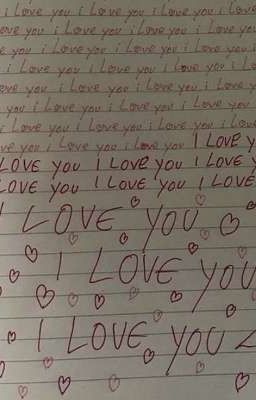 i Love you i Love you i Love you i Love
ove you i Love you i Love you i Love you
ove you i Love you i Love you i Love you
e you i Love you i Love you i Love you
i Love you i Love you i Love you i Love
i Love you i Love you i Love you i Love
you i Love you i Love you i Love you
i Love you i Love you i Love you i Love
ove you i Love you i Love you I LOVE Y
LOVE you I LOVE you I LOVE Y
LOVE you I LOVE you I LOVE
I LOVE YOU
I LOVE YOU
I LOVE YOU